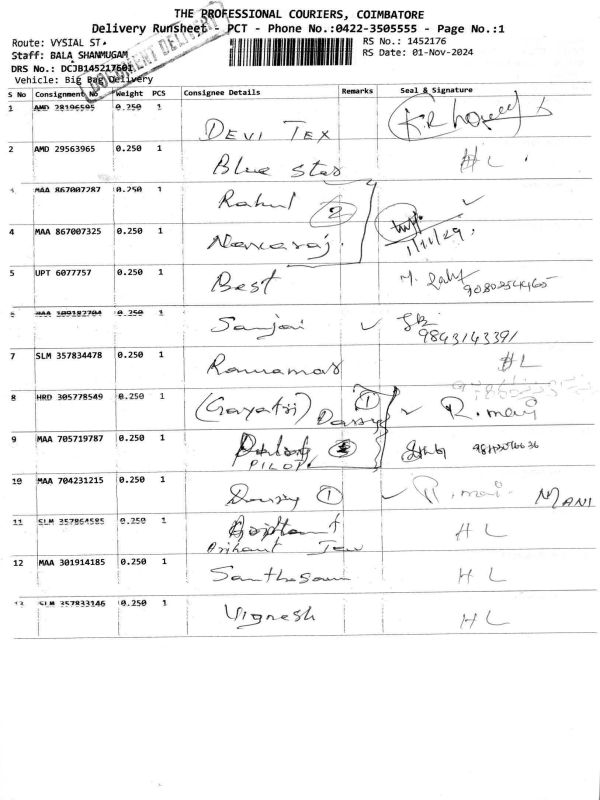 THE PROFESSIONAL COURIERS, COIMBATORE
Delivery Runsheet - PCT - Phone No.:0422-3505555 - Page No.:1
Route: VYSIAL ST.
RS No.: 1452176
Staff: BALA SHANMUGAM
RS Date: 01-Nov-2024
DRS No.: DCJB145217601
Vehicle: Big Bag Delivery
DOCUMENT DELIVERY
S No Consignment No Weight PCS Consignee Details Remarks Seal & Signature
1 AMD 28196595 0.250 1
DEVI TEX
2 AMD 29563965 0.250 1
Blue Star HL.
3 MAA 867007287 0.250 1
Rahul 2
4 MAA 867007325 0.250 1
1/11/24.
5 UPT 6077757 0.250 1
Best
6 MAA 309182704 0.250 1
Sanjai
9843143391
7 SLM 357834478 0.250 1
HL
8 HRD 305778549 0.250 1
(Gayatri) 1 R.mani
9 MAA 705719787 0.250 1
PILOT.
10 MAA 704231215 0.250 1
1 R.mani MANI
11 SLM 357864585 0.250 1
Arihant HL
12 MAA 301914185 0.250 1
HL
13 SLM 357833146 0.250 1
Vignesh HL